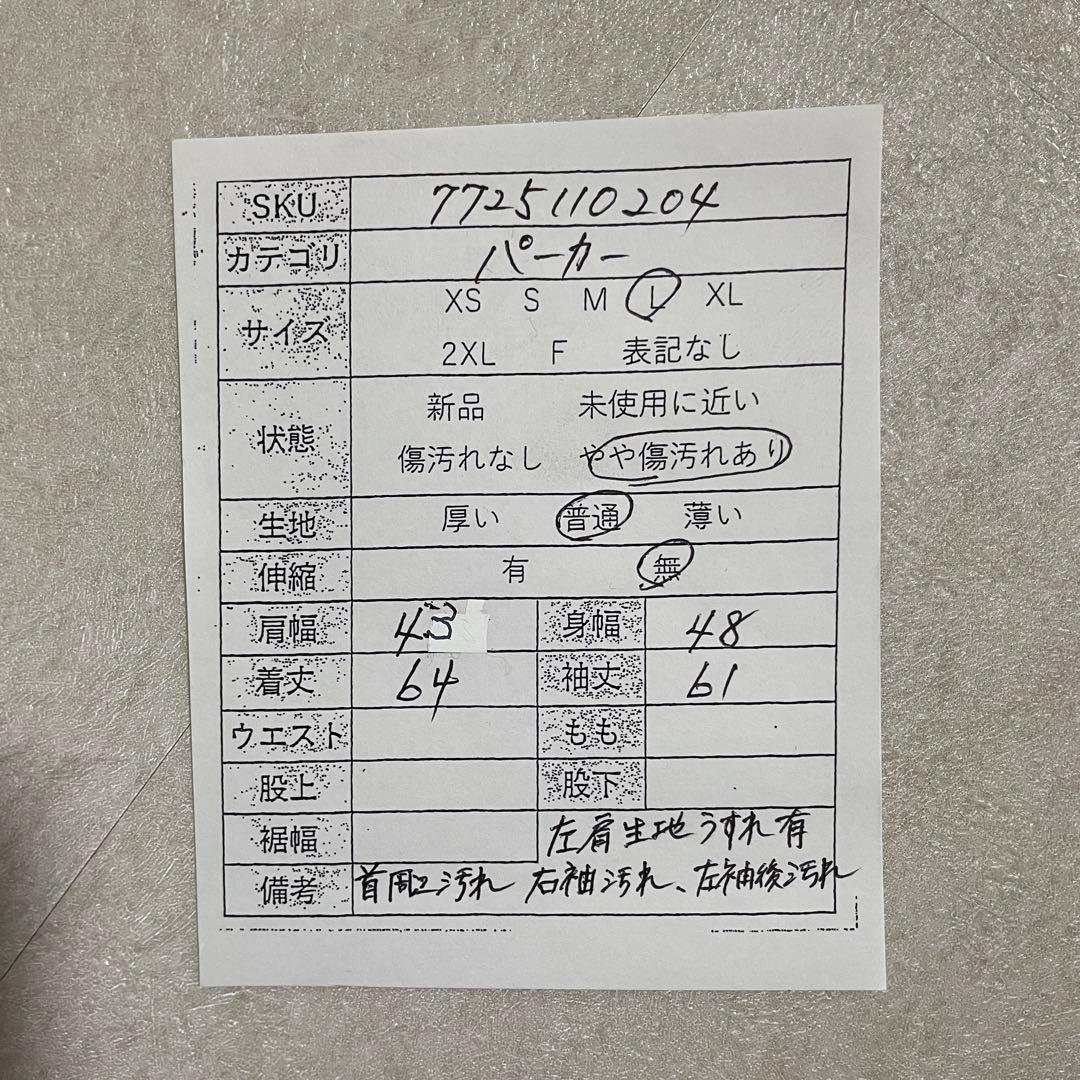 SKU 7725110204
カテゴリ パーカー
サイズ XS S M L XL
2XL F 表記なし
状態 新品 未使用に近い
傷汚れなし やや傷汚れあり
生地 厚い 普通 薄い
伸縮 有 無
肩幅 43 身幅 48
着丈 64 袖丈 61
ウエスト もも
股上 股下
裾幅 左肩生地うすれ有
備考 首周り汚れ 右袖汚れ、左袖後汚れ